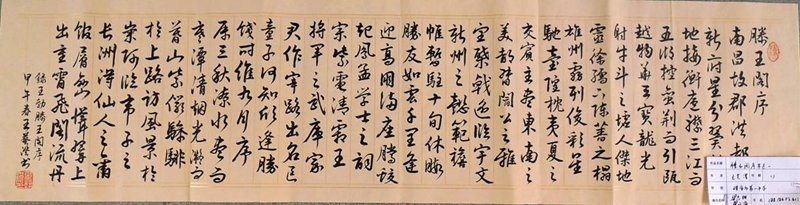 滕王閣序
南昌故郡洪都
新府星分翼軫
地接衡廬襟三江而
五湖控蠻荊而引甌
越物華天寶龍光
射牛斗之墟人傑地
靈徐孺下陳蕃之榻
雄州霧列俊彩星
馳臺隍枕夷夏之
交賓主盡東南之
美都督閻公之雅
望棨戟遙臨宇文
新州之懿範襜
帷暫駐十旬休暇
勝友如雲千里逢
迎高朋滿座騰蛟
起鳳孟學士之詞
宗紫電清霜王
將軍之武庫家
君作宰路出名區
童子何知躬逢勝
餞時維九月序
屬三秋潦水盡而
寒潭清烟光凝而
暮山紫儼驂騑
於上路訪風景於
崇阿臨帝子之
長洲得仙人之舊
館層巒聳翠上
出重霄飛閣流丹
錄王勃滕王閣序
甲午春王英書